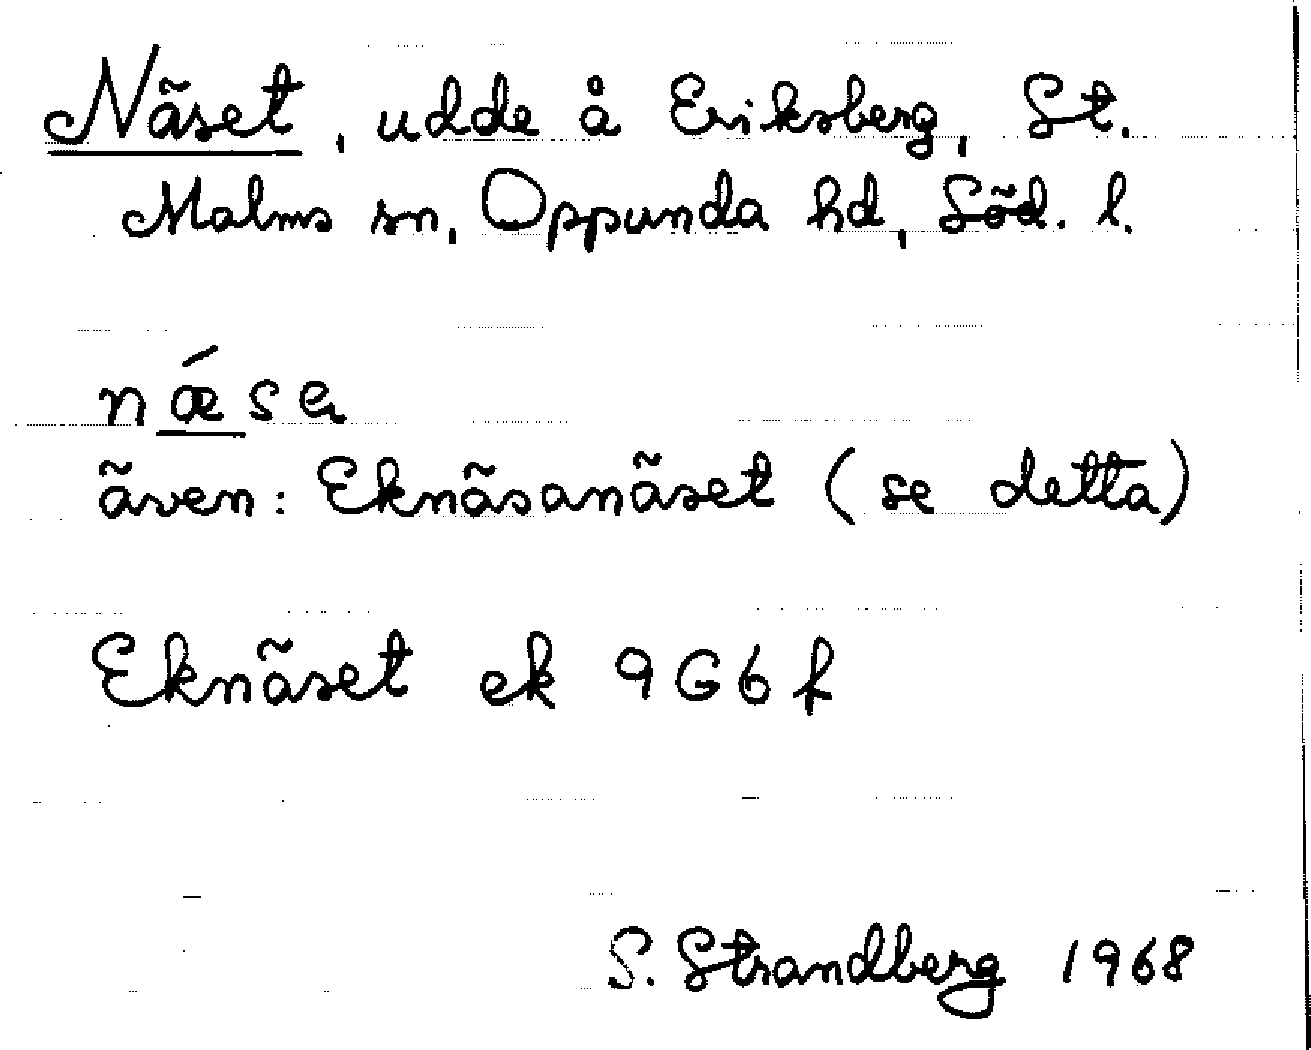 Näset, udde å Eriksberg, St.
Malms sn, Oppunda hd, Söd. l.
nǽsa
även: Eknäsanäset (se detta)
Eknäset ek 9G6f
S. Strandberg 1968